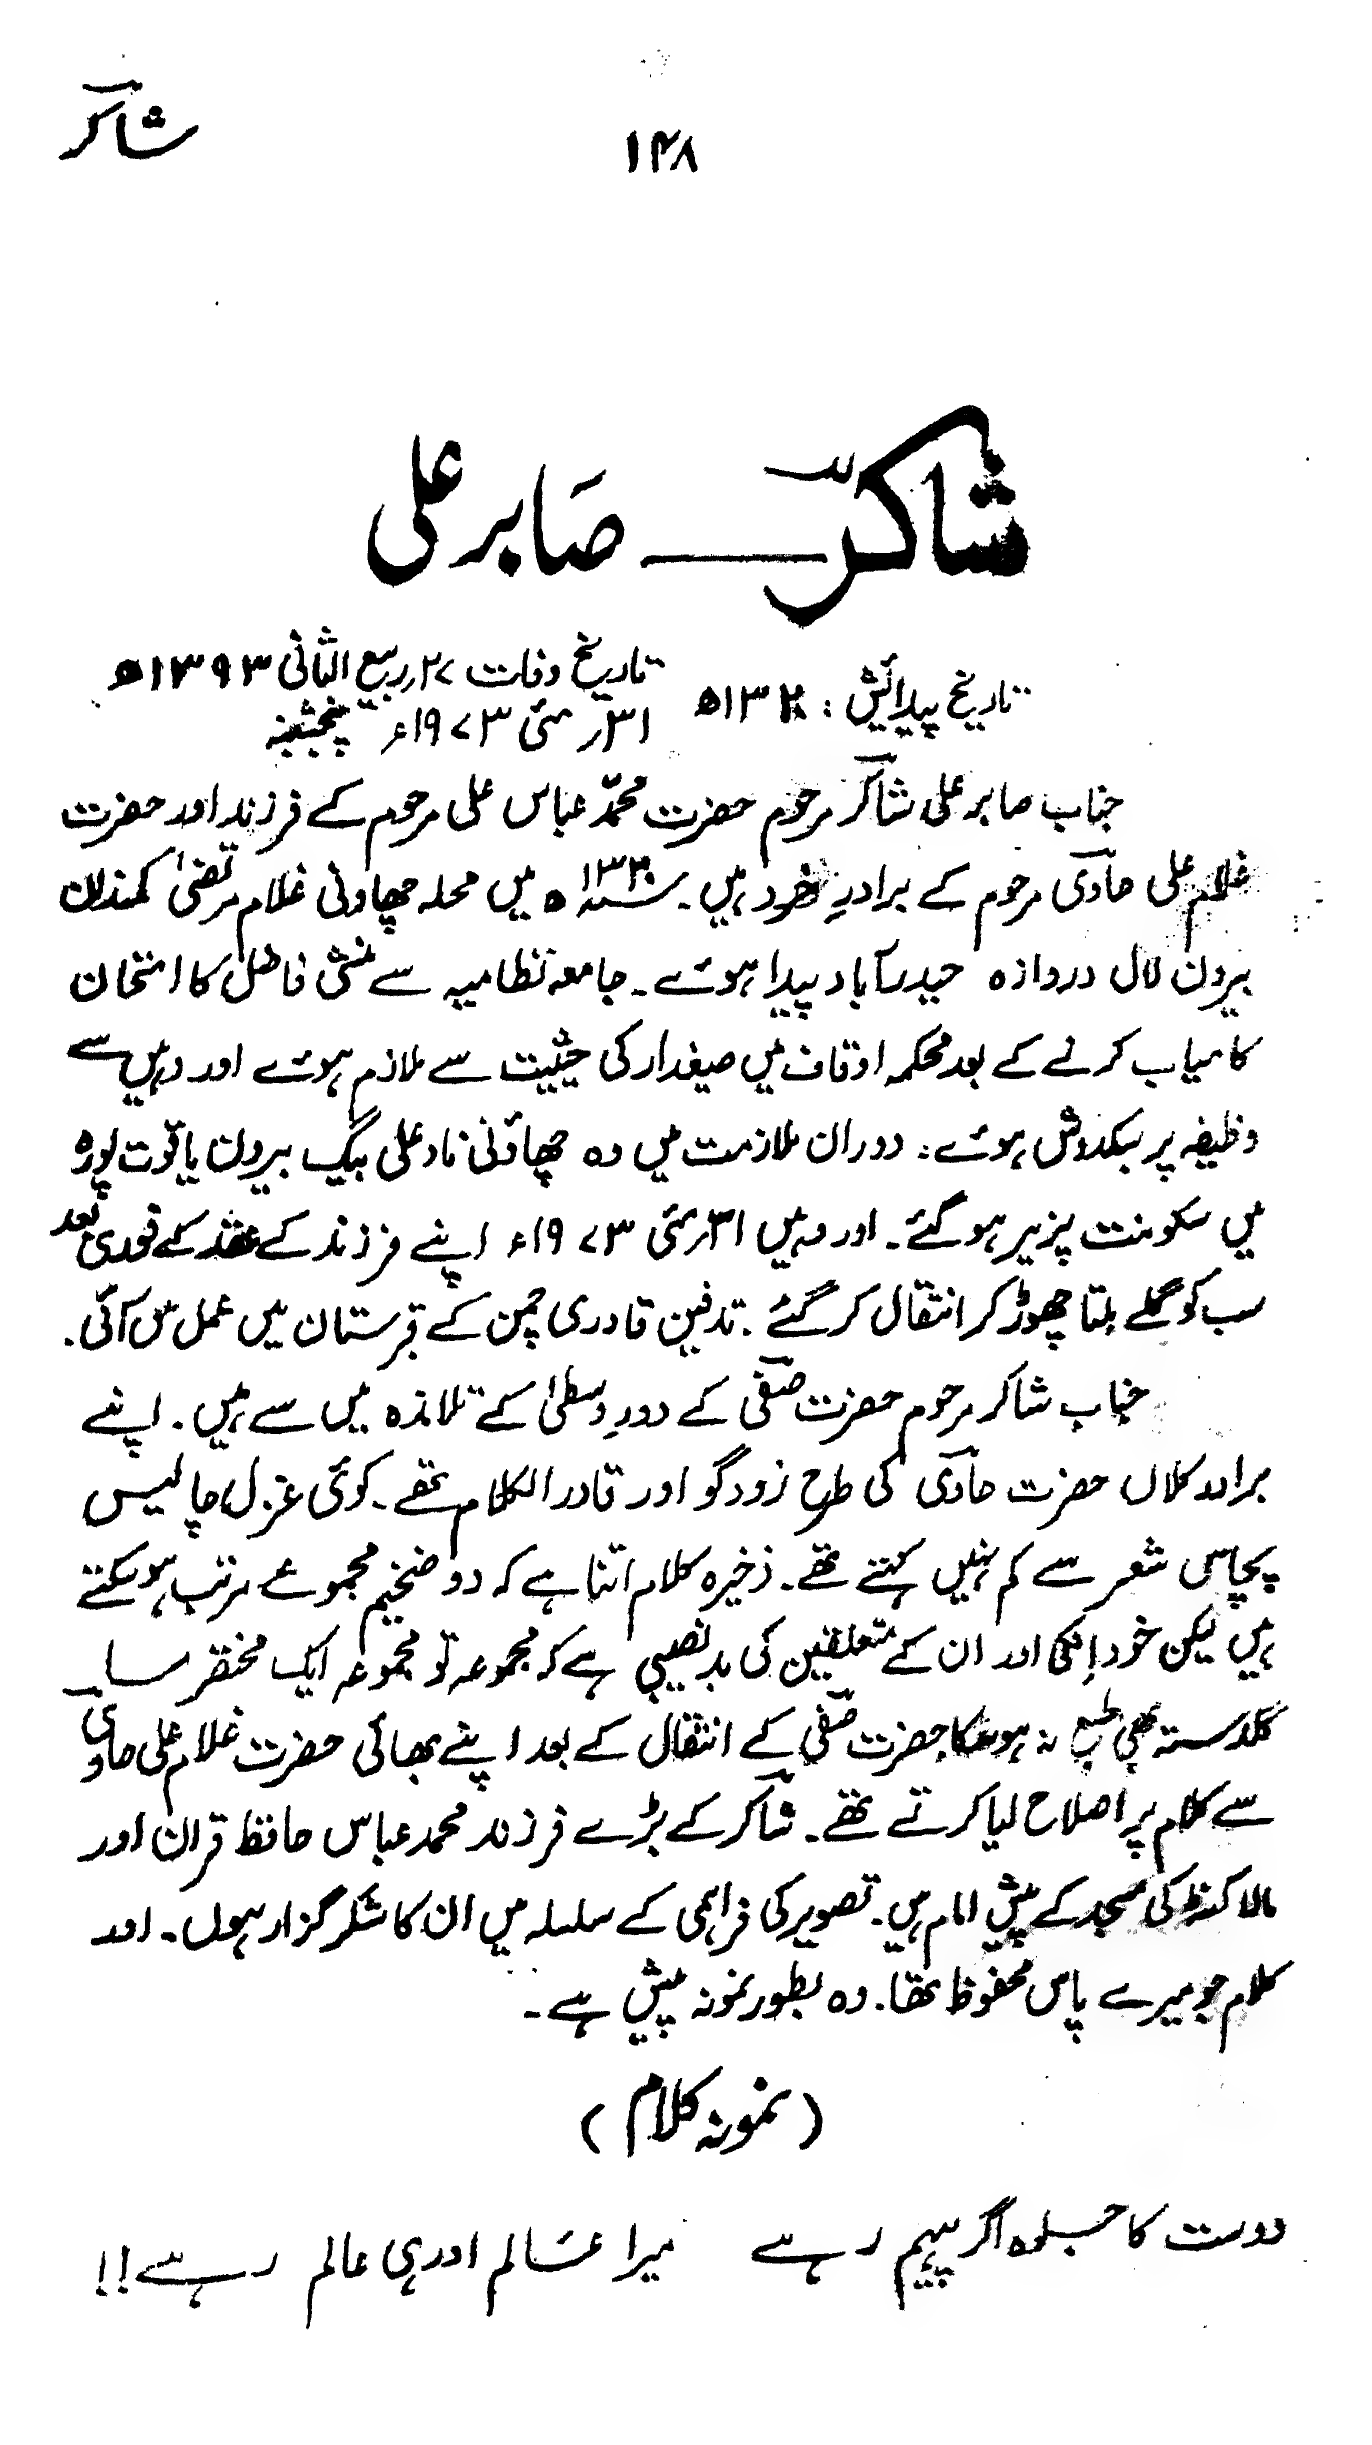 شاکر
۱۴۸
شاکر ــــ صابر علی
تاریخ پیدائش : ۱۳۲۰ھ
تاریخ وفات ۲۷ ربیع الثانی ۱۳۹۳ھ
۳۱ر مئی ۱۹۷۳ء پنجشنبہ
جناب صابر علی شاکر مرحوم حضرت محمد عباس علی مرحوم کے فرزند اور حضرت
غلام علی حاوی مرحوم کے برادرِ خورد ہیں۔ ۱۳۲۰ھ میں محلہ چھاونی غلام مرتضیٰ کمندان
بیرون لال دروازہ حیدرآباد پیدا ہوئے۔ جامعہ نظامیہ سے منشی فاضل کا امتحان
کامیاب کرنے کے بعد محکمہ اوقاف میں صیغدار کی حیثیت سے ملازم ہوئے اور وہیں سے
وظیفہ پر سبکدوش ہوئے۔ دوران ملازمت میں وہ چھاؤنی ناد علی بیگ بیرون یاقوت پورہ
میں سکونت پزیر ہوگئے۔ اور وہیں ۳۱ر مئی ۱۹۷۳ء اپنے فرزند کے عقد کے فوری بعد
سب کو گلے ملتا چھوڑ کر انتقال کر گئے۔ تدفین قادری چمن کے قبرستان میں عمل میں آئی۔
جناب شاکر مرحوم حضرت صفی کے دورِ وسطیٰ کے تلامذہ میں سے ہیں۔ اپنے
برادر کلاں حضرت حاوی کی طرح زود گو اور قادر الکلام تھے۔ کوئی غزل چالیس
پچاس شعر سے کم نہیں کہتے تھے۔ ذخیرہ کلام اتنا ہے کہ دو ضخیم مجموعے مرتب ہوسکتے
ہیں لیکن خود اِنکی اور ان کے متعلقین کی بدنصیبی ہے کہ مجموعہ تو مجموعہ ایک مختصر سا
گلدستہ بھی طبع نہ ہوسکا۔ حضرت صفی کے انتقال کے بعد اپنے بھائی حضرت غلام علی حاوی
سے کلام پر اصلاح لیا کرتے تھے۔ شاکر کے بڑے فرزند محمد عباس حافظ قران اور
مالا کنٹہ کی مسجد کے پیش امام ہیں۔ تصویر کی فراہمی کے سلسلہ میں ان کا شکر گزار ہوں۔ اور
کلام جو میرے پاس محفوظ تھا۔ وہ بطور نمونہ پیش ہے۔
(نمونہ کلام)
دوست کا جلوہ اگر پیہم رہے میرا عالم اور ہی عالم رہے!!